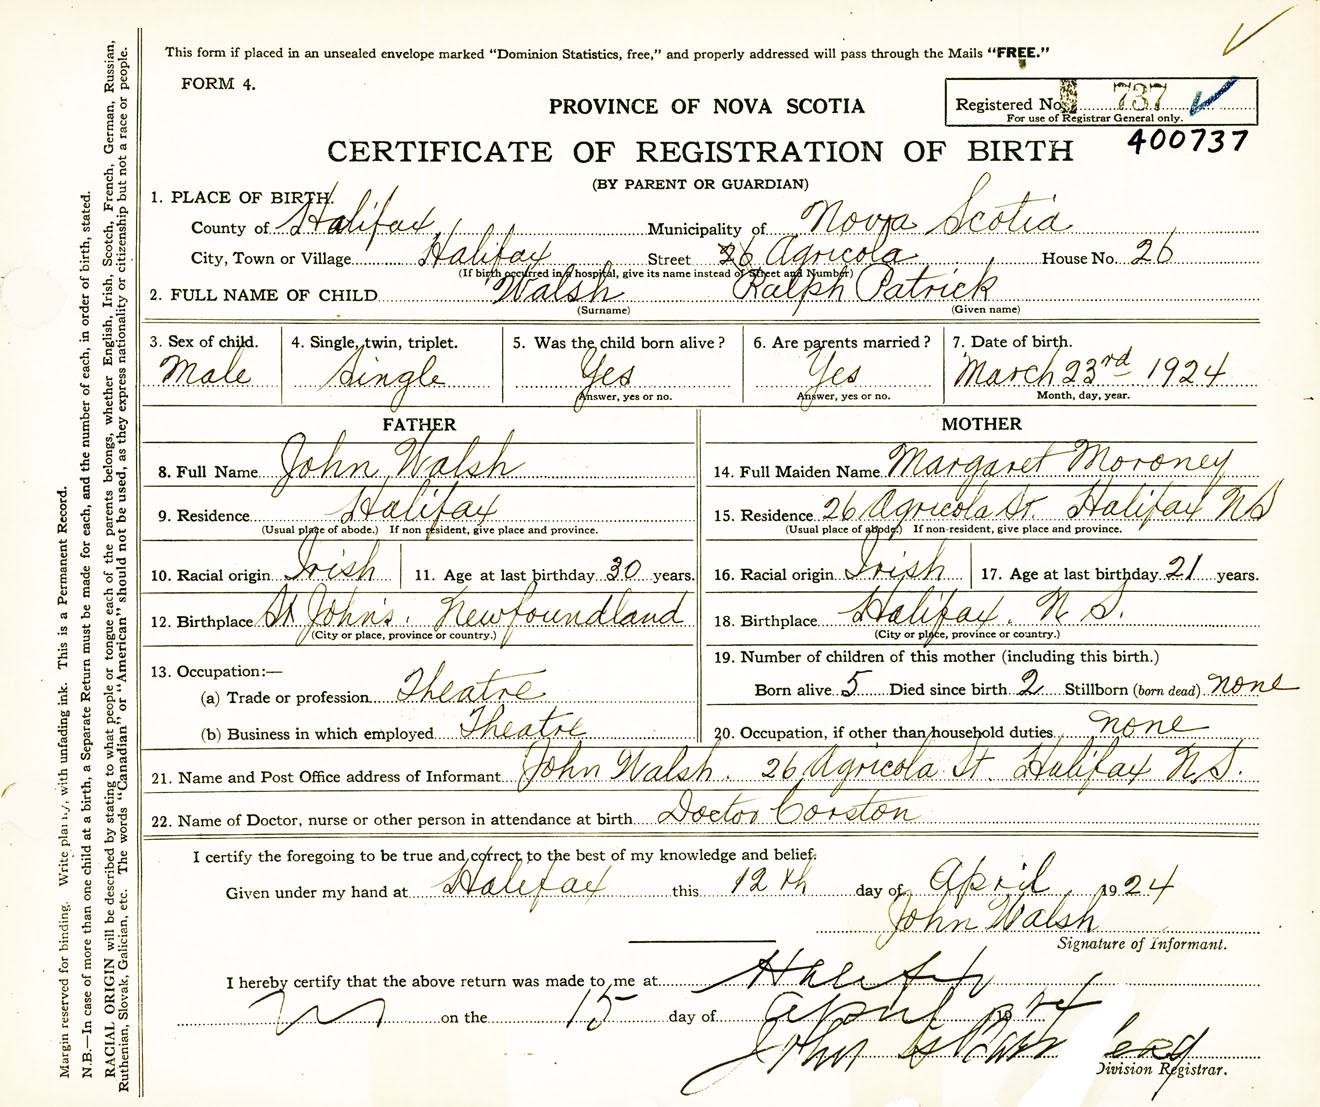 This form if placed in an unsealed envelope marked "Dominion Statistics, free," and properly addressed will pass through the Mails "FREE."
FORM 4.
Registered No. 737
For use of Registrar General only.
PROVINCE OF NOVA SCOTIA
400737
CERTIFICATE OF REGISTRATION OF BIRTH
(BY PARENT OR GUARDIAN)
1. PLACE OF BIRTH.
County of Halifax Municipality of Nova Scotia
City, Town or Village Halifax Street 26 Agricola House No. 26
(If birth occurred in a hospital, give its name instead of Street and Number)
2. FULL NAME OF CHILD Walsh Ralph Patrick
(Surname) (Given name)
3. Sex of child. 4. Single, twin, triplet. 5. Was the child born alive? 6. Are parents married? 7. Date of birth.
Male Single Yes Yes March 23rd 1924
Answer, yes or no. Answer, yes or no. Month, day, year.
FATHER MOTHER
8. Full Name John Walsh 14. Full Maiden Name Margaret Moroney
9. Residence Halifax 15. Residence 26 Agricola St. Halifax NS
(Usual place of abode.) If non resident, give place and province. (Usual place of abode.) If non-resident, give place and province.
10. Racial origin Irish 11. Age at last birthday 30 years. 16. Racial origin Irish 17. Age at last birthday 21 years.
12. Birthplace St John's. Newfoundland 18. Birthplace Halifax. N S.
(City or place, province or country.) (City or place, province or country.)
13. Occupation:— 19. Number of children of this mother (including this birth.)
(a) Trade or profession Theatre Born alive 5 Died since birth 2 Stillborn (born dead) none
(b) Business in which employed Theatre 20. Occupation, if other than household duties none
21. Name and Post Office address of Informant John Walsh. 26 Agricola St. Halifax N.S.
22. Name of Doctor, nurse or other person in attendance at birth Doctor Corston
I certify the foregoing to be true and correct to the best of my knowledge and belief.
Given under my hand at Halifax this 12th day of April 1924
John Walsh
Signature of Informant.
I hereby certify that the above return was made to me at Halifax
on the 15 day of April 19 24
John
Division Registrar.
Margin reserved for binding. Write plainly, with unfading ink. This is a Permanent Record.
N.B.—In case of more than one child at a birth, a Separate Return must be made for each, and the number of each, in order of birth, stated.
RACIAL ORIGIN will be described by stating to what people or tongue each of the parents belongs, whether English, Irish, Scotch, French, German, Russian,
Ruthenian, Slovak, Galician, etc. The words "Canadian" or "American" should not be used, as they express nationality or citizenship but not a race or people.